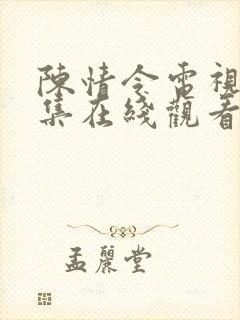 陳情令電視
集在綫觀看
孟麗堂